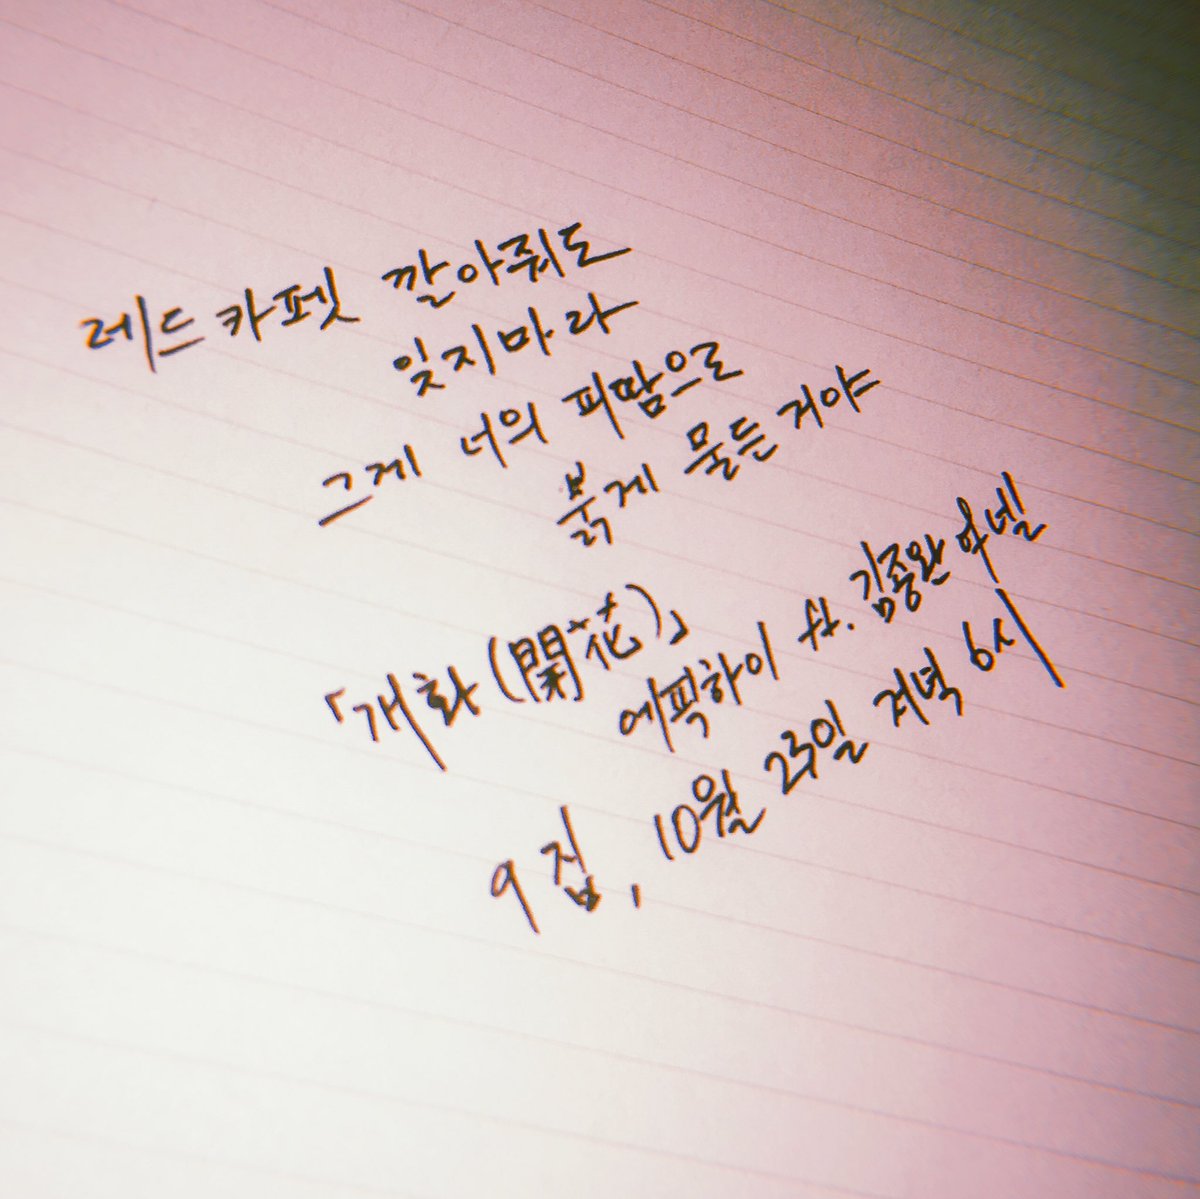 레드카펫 깔아줘도
잊지마라
그게 너의 피땀으로
붉게 물든거야
「개화(開花)」
에픽하이 ft. 김종완 of 넬
9집, 10월 23일 저녁 6시